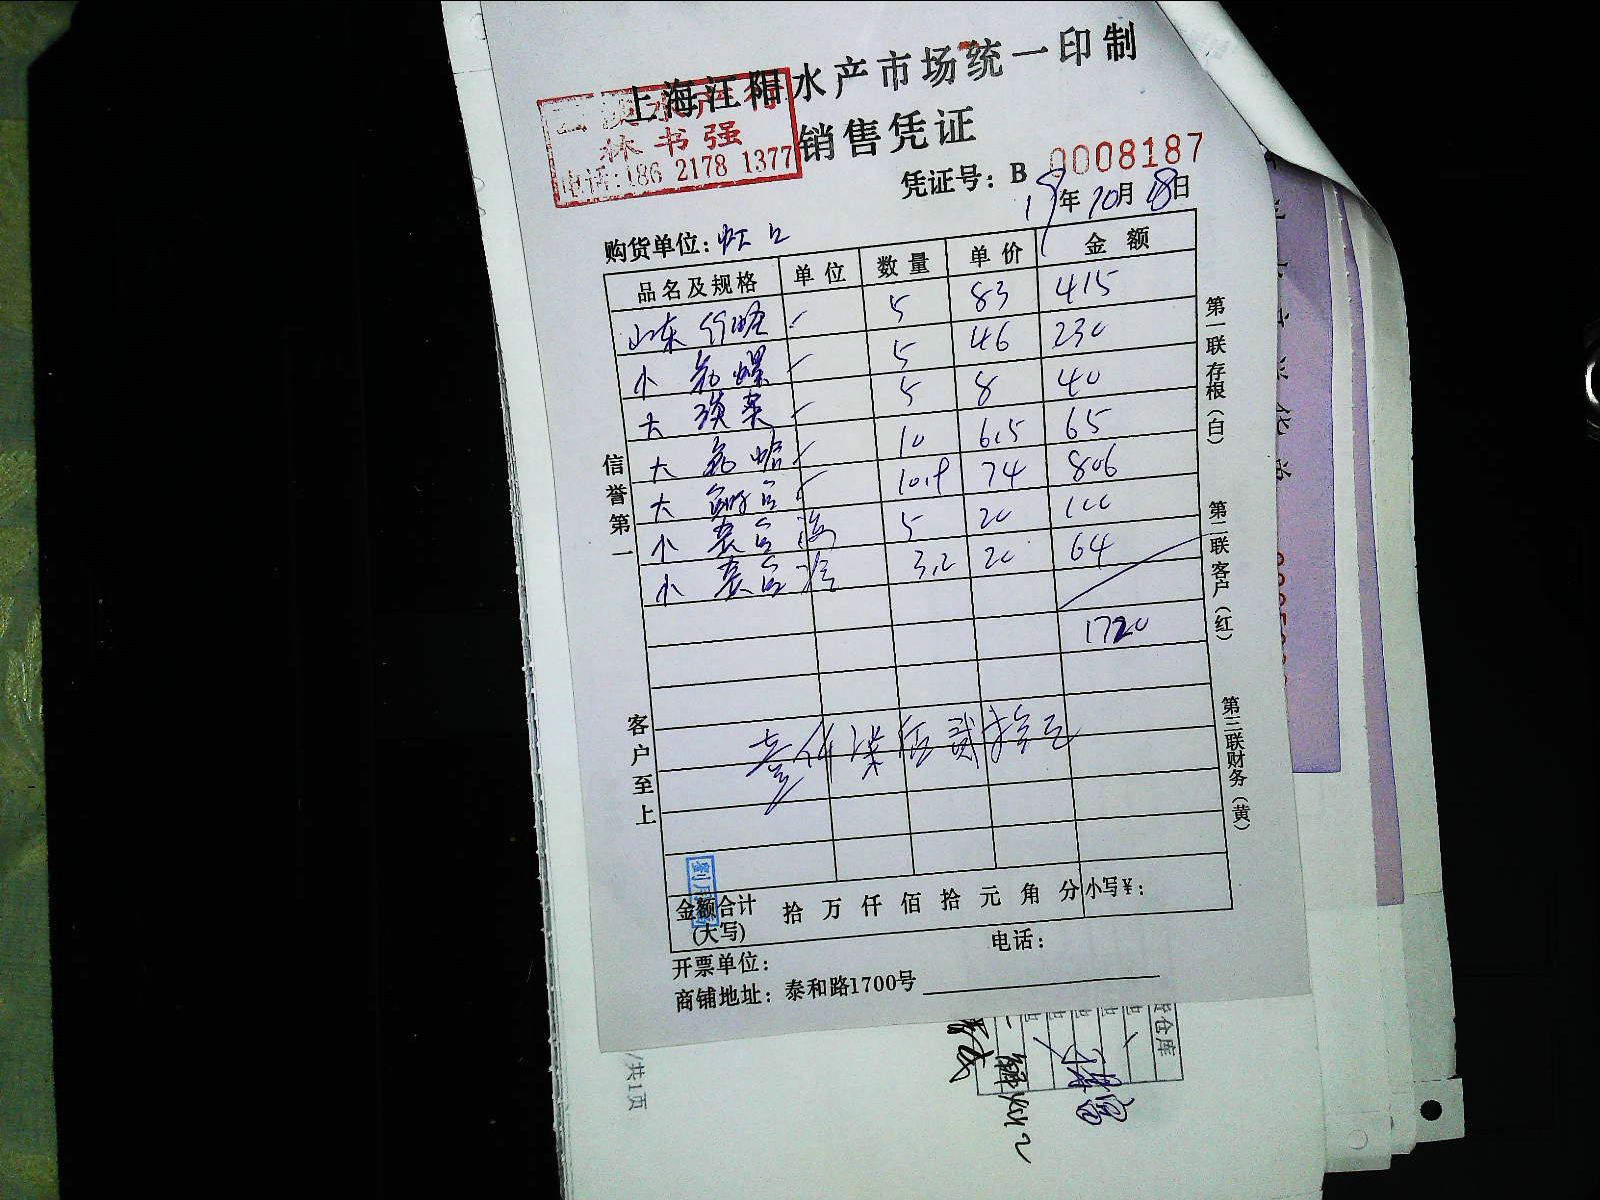 上海江阳水产市场统一印制
销售凭证
水产行
林书强
电话:186 2178 1377
凭证号：B 0008187
19年10月18日
购货单位：虹口
品名及规格 单位 数量 单价 金额
山东 5 83 415
小 螺 5 46 230
大 淡菜 5 8 40
大 蛤 10 6.5 65
大 10.9 74 806
小 5 20 100
小 3.2 20 64
1720
壹仟柒佰贰拾元
信誉第一
客户至上
第一联存根（白）
第二联客户（红）
第三联财务（黄）
金额合计(大写) 拾 万 仟 佰 拾 元 角 分 小写¥：
开票单位：
电话：
商铺地址：泰和路1700号
/共1页
仓库